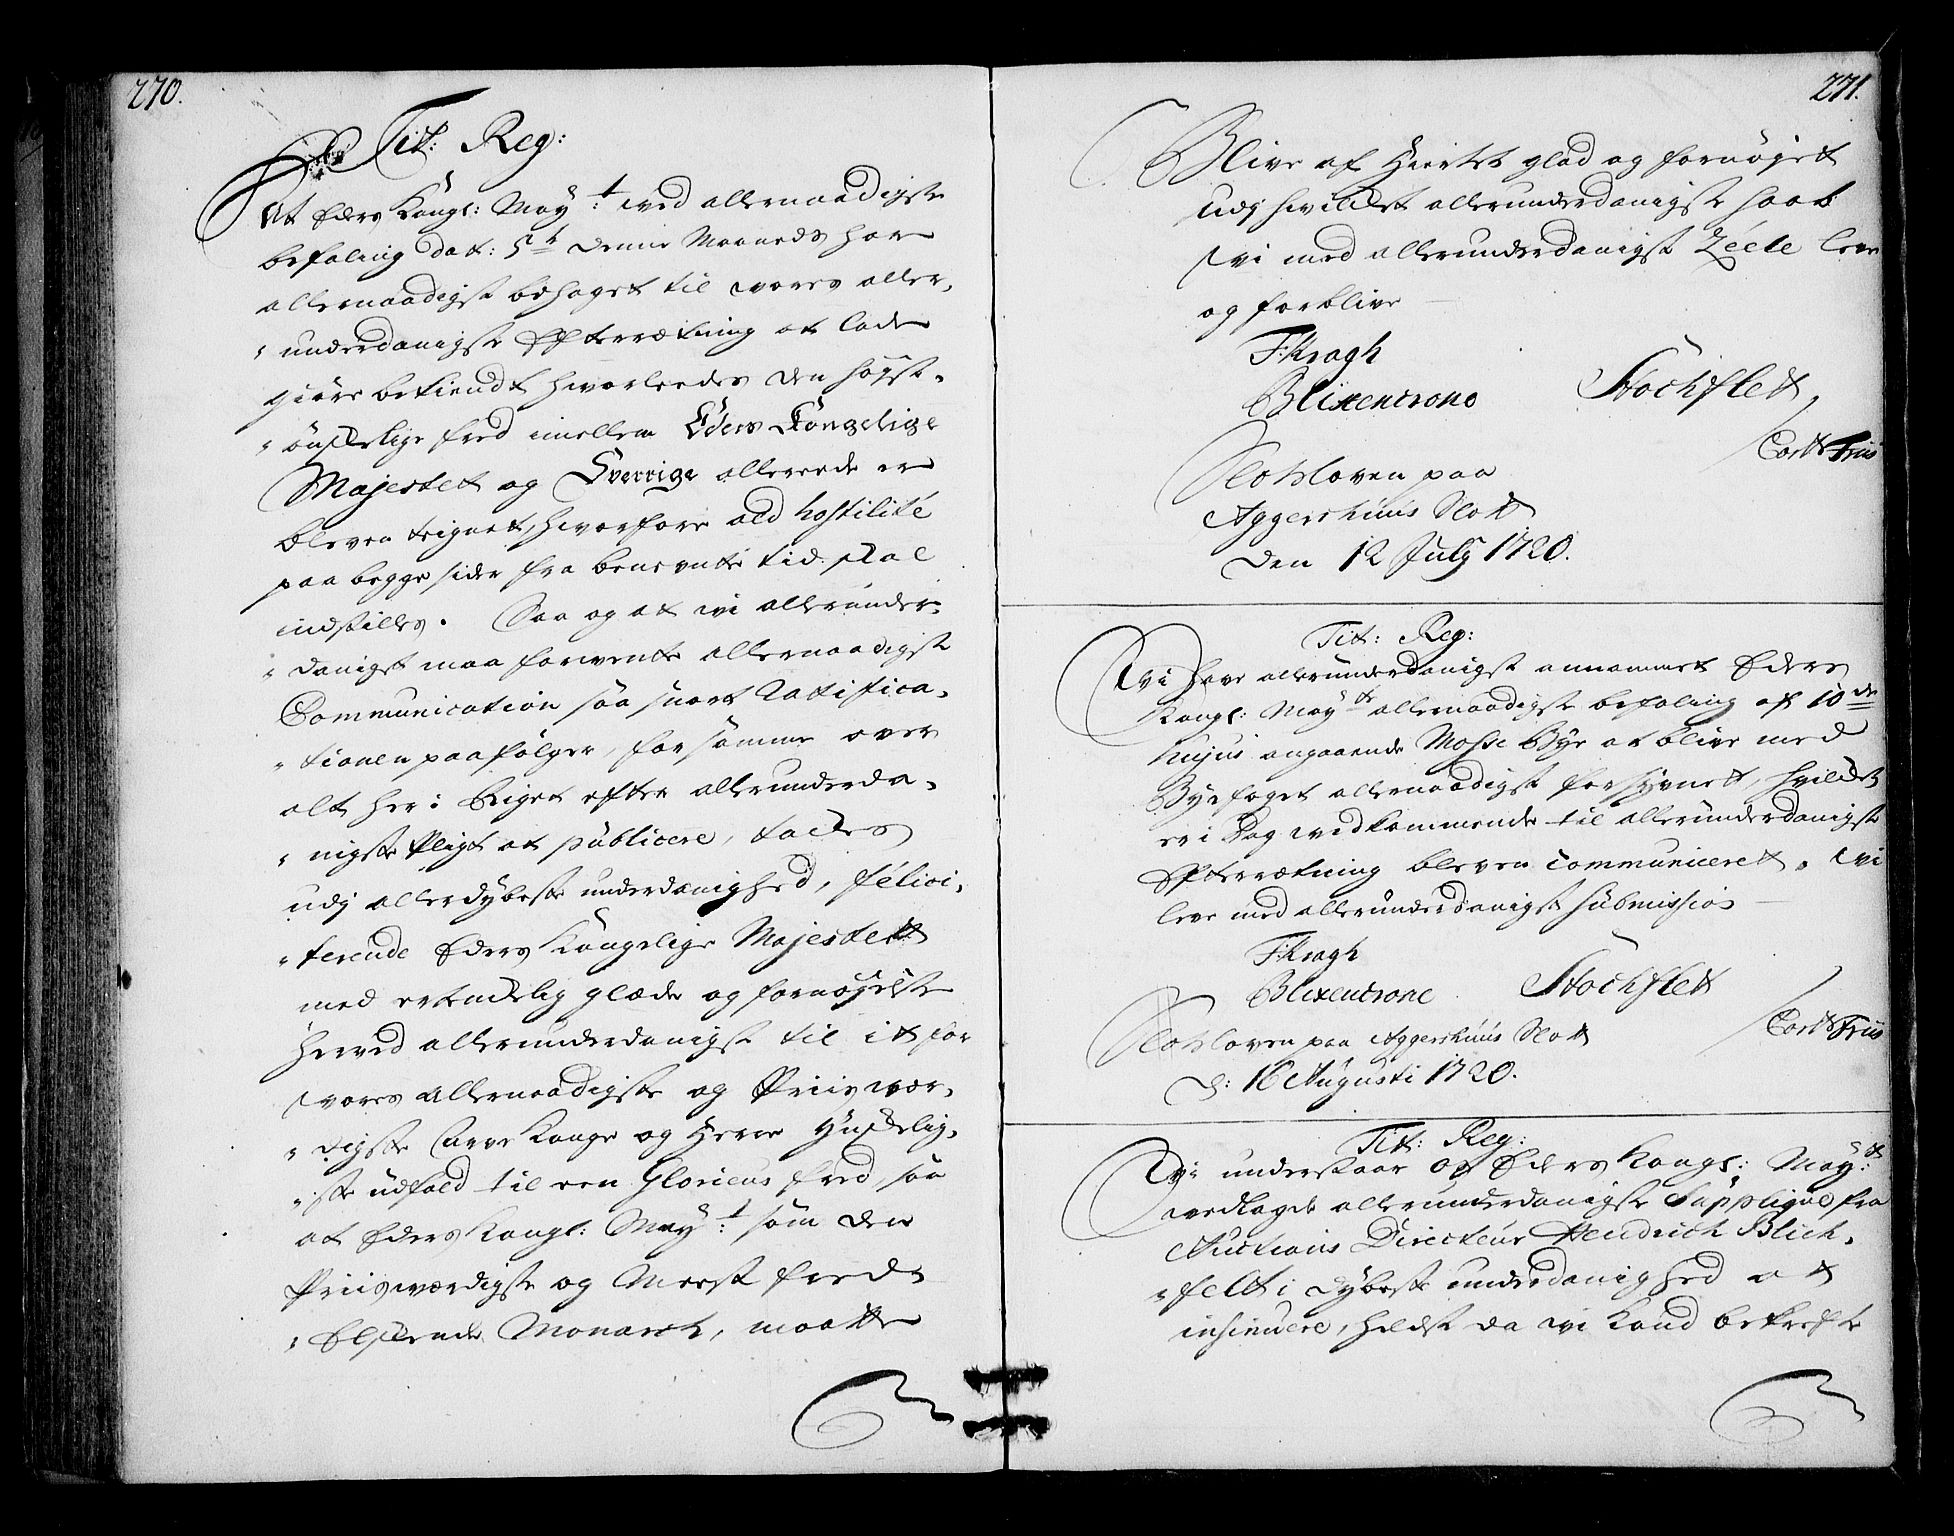 270.
Tit: Reg:
At Eders Kongl: May:t ved allernaadigste
befaling dat: 5te denne Maaneds har
allernaadigst behaget til vores aller„
„underdanigste Efterrætning at lade
giöre bekiendt hvorleedes den högst„
„önskelige fred imellem Eders Kongelige
Majestet og Sverrige allereede er
bleven teignet, hvorfore ald hostilité
paa begge sider fra benevnte tid skal
indstilles. Saa og at vi allerunder„
„danigst maa forvente allernaadigst
Communication saa snart Ratifica„
„tionen paafölger, for samme over
alt her i Riget efter allerunderda„
„nigste Pligt at publicere, tackes
udj allerdybeste underdanighed, felici„
„terende Eders Kongelige Majestett
med ertendelig glæde og fornöyelse
herved allerunderdanigst til it for
vores allernaadigste og Priisvær„
„digste Arve Konge og Herre Hydelig„
„ste udfald til een Glorieus fred, saa
at Eders Kongl: May:t som den
Priisværdigste og Meest freds
„Elskende Monarch, maatte
271.
Blive af Hiertet glad og fornöyet
udj hvilcket allerunderdanigste haab
vi med allerunderdanigst Zéele leve
og forblive
F: Kragh
Blixencrone Stochflett
Cort Friis
Slotzloven paa
Aggershuus Slott
den 12 July 1720.
Tit: Reg:
Vi have allerunderdanigst annammet Eders
Kongl: May:ts allernaadigste befaling af 10de
hujus angaaende Mosse Bye at blive med
Byefoget allernaadigst forsynet, hvilcket
er i Dag vedkommende til allerunderdanigste
Efterrætning bleven communiceret. Vi
leve med allerunderdanigst submission
F: Kragh
Blixencrone Stochflett
Cort Friis
Slotzloven paa Aggershuus Slott
d: 16 Augusti 1720.
Tit: Reg:
Vi understaar os Eders Kongl: May:tt
vedlagde allerunderdanigste Supplique fra
Auctions Directeur Hendrich Blich„
„felt i dybeste underdanighed at
insinuere, heldst da vi kand bekrefte